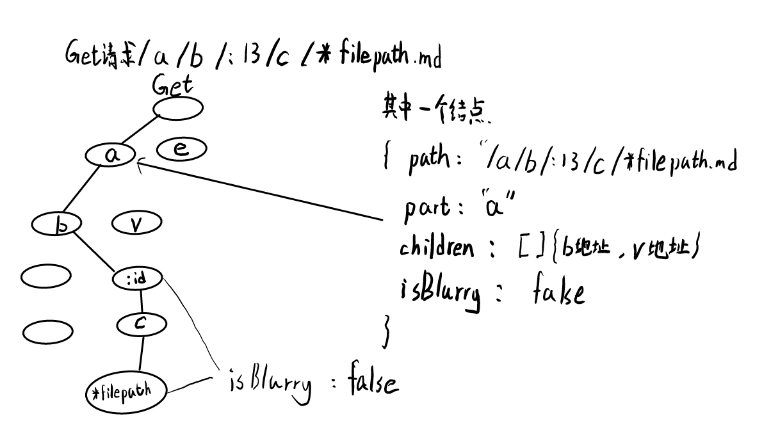 Get请求/a/b/:13/c/*filepath.md
Get
a
e
b
v
:id
c
*filepath
isBlurry : false
其中一个结点
{ path: "/a/b/:13/c/*filepath.md
part: "a"
children : []{b地址, v地址}
isBlurry : false
}